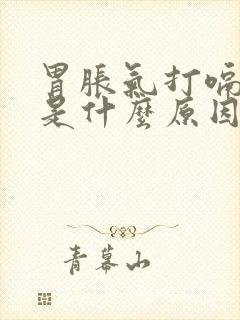 胃脹氣打嗝
是什麼原因
青幕山